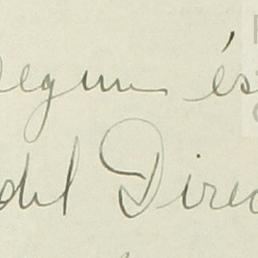 segun és
del Direc